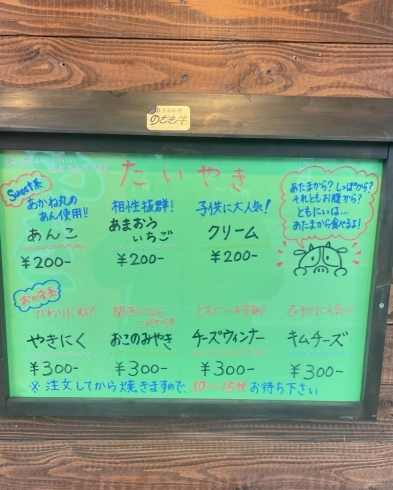 たいやき
Sweet系
あかね丸の
あん使用!!
あんこ
¥200-
相性抜群!
あまおう
いちご
¥200-
子供に大人気!
クリーム
¥200-
あたまから?しっぽから?
それともお腹から?
ともにいは...
あたまから食べるよ!
おかず系
かわりだね!?
やきにく
¥300-
関西なら
おこのみやき
¥300-
チーズウィンナー
¥300-
ひそかに人気!?
キムチーズ
¥300-
※注文してから焼きますので、10〜15分お待ち下さい